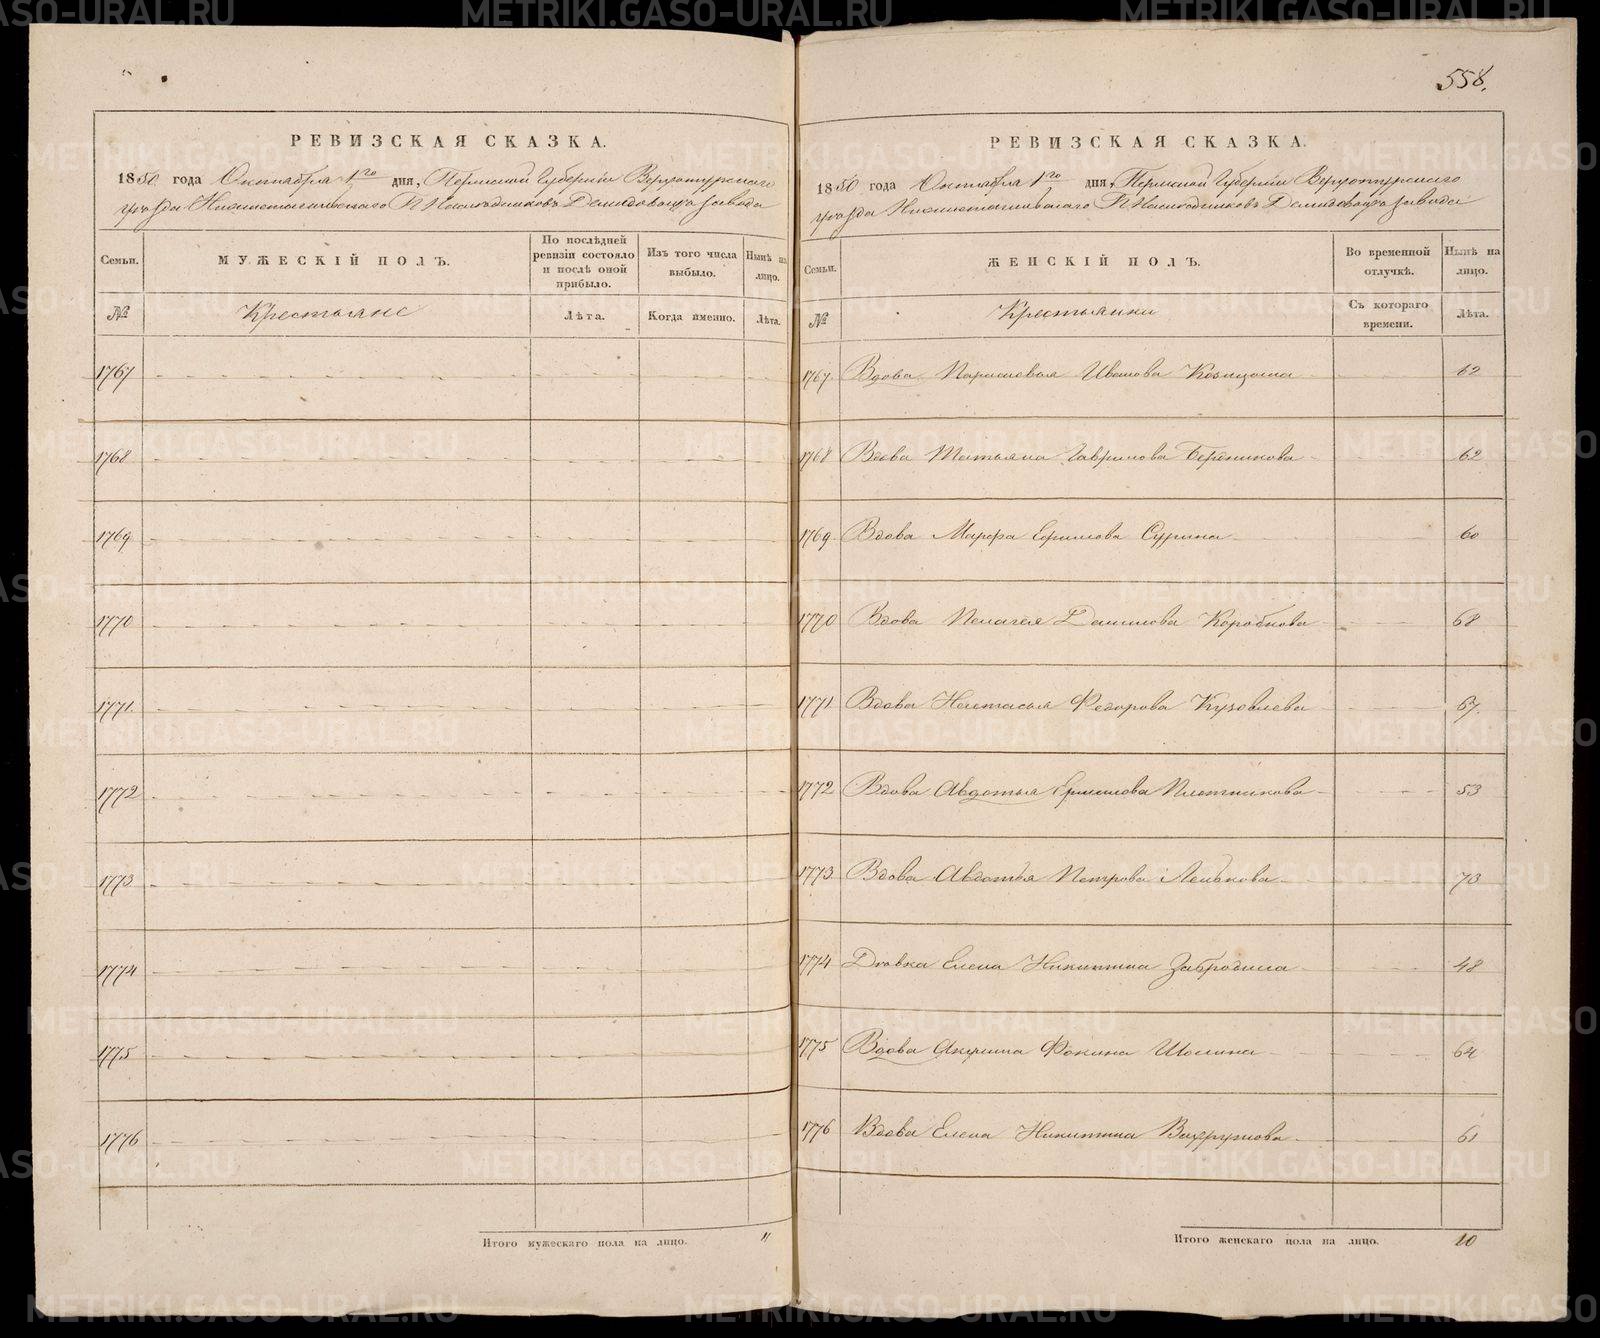 558.
РЕВИЗСКАЯ СКАЗКА.
1850 года Октября 1го дня, Пермской Губернiи Верхотурскаго
уѣзда Нижнетагильскаго Г.г. Наслѣдниковъ Демидовыхъ завода
Семьи.
МУЖЕСКІЙ ПОЛЪ.
По послѣдней ревизіи состояло и послѣ оной прибыло.
Изъ того числа выбыло.
Нынѣ на лицо.
№
Крестьяне
Лѣта.
Когда именно.
Лѣта.
1767
1768
1769
1770
1771.
1772
1773
1774
1775
1776
Итого мужескаго пола на лицо. "
РЕВИЗСКАЯ СКАЗКА.
1850 года Октября 1го дня, Пермской Губернiи Верхотурскаго
уѣзда Нижнетагильскаго Г.г. Наслѣдниковъ Демидовыхъ завода
Семьи.
ЖЕНСКІЙ ПОЛЪ.
Во временной отлучкѣ.
Нынѣ на лицо.
№
Крестьянки
Съ котораго времени.
Лѣта.
1767. Вдова Парасковья Иванова Казицына 62
1768 Вдова Татьяна Гаврилова Бердникова 62
1769 Вдова Марфа Ефимова Сурина 60
1770 Вдова Пелагея Данилова Коробкова 68
1771 Вдова Настасья Федорова Кузовлева 67.
1772 Вдова Авдотья Ермилова Плотникова 53
1773. Вдова Авдотья Петрова Ленькова 73
1774 Дѣвка Елена Никитина Забродина 48
1775 Вдова Акулина Фокина Шолина 64
1776 Вдова Елена Никитина Вахрушова 61
Итого женскаго пола на лицо. 10